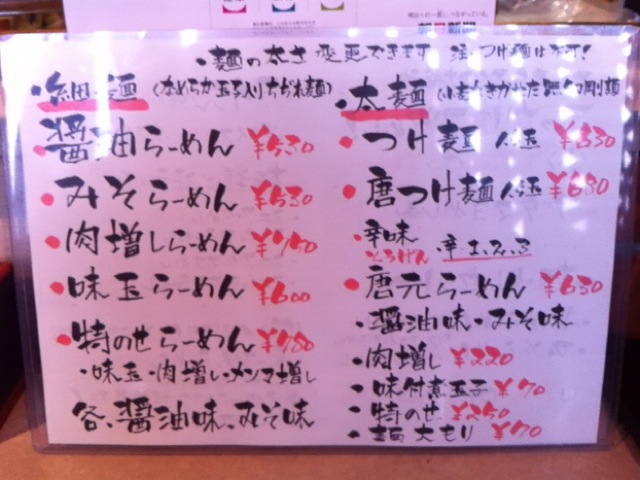 ・麺の太さ変更できます 注・つけ麺は不可!
・細麺 (なめらか玉子入りちぢれ麺)
・醤油らーめん ¥530
・みそらーめん ¥530
・肉増しらーめん ¥750
・味玉らーめん ¥600
・特のせらーめん ¥780
・味玉・肉増し・メンマ増し
各、醤油味、みそ味
・太麺
・つけ麺 ¥530
・唐つけ麺 ¥630
・辛味
・唐元らーめん ¥630
・醤油味・みそ味
・肉増し ¥220
・味付煮玉子 ¥70
・特のせ ¥250
・麺大もり ¥70